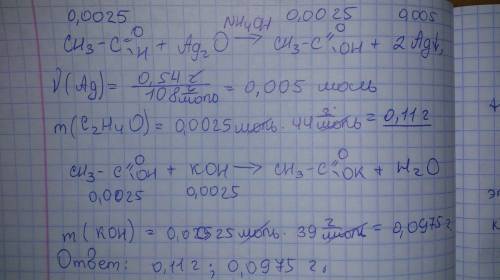 0,0025 NH4OH 0,0025 0,005
CH3-C=O-H + Ag2O → CH3-C=O-OH + 2Ag↓
ν(Ag) = 0,54 г / 108 г/моль = 0,005 моль
m(C2H4O) = 0,0025 моль · 44 г/моль = 0,11 г
CH3-C=O-OH + KOH → CH3-C=O-OK + H2O
0,0025 0,0025
m(KOH) = 0,0025 моль · 39 г/моль = 0,0975 г
Ответ: 0,11 г ; 0,0975 г.